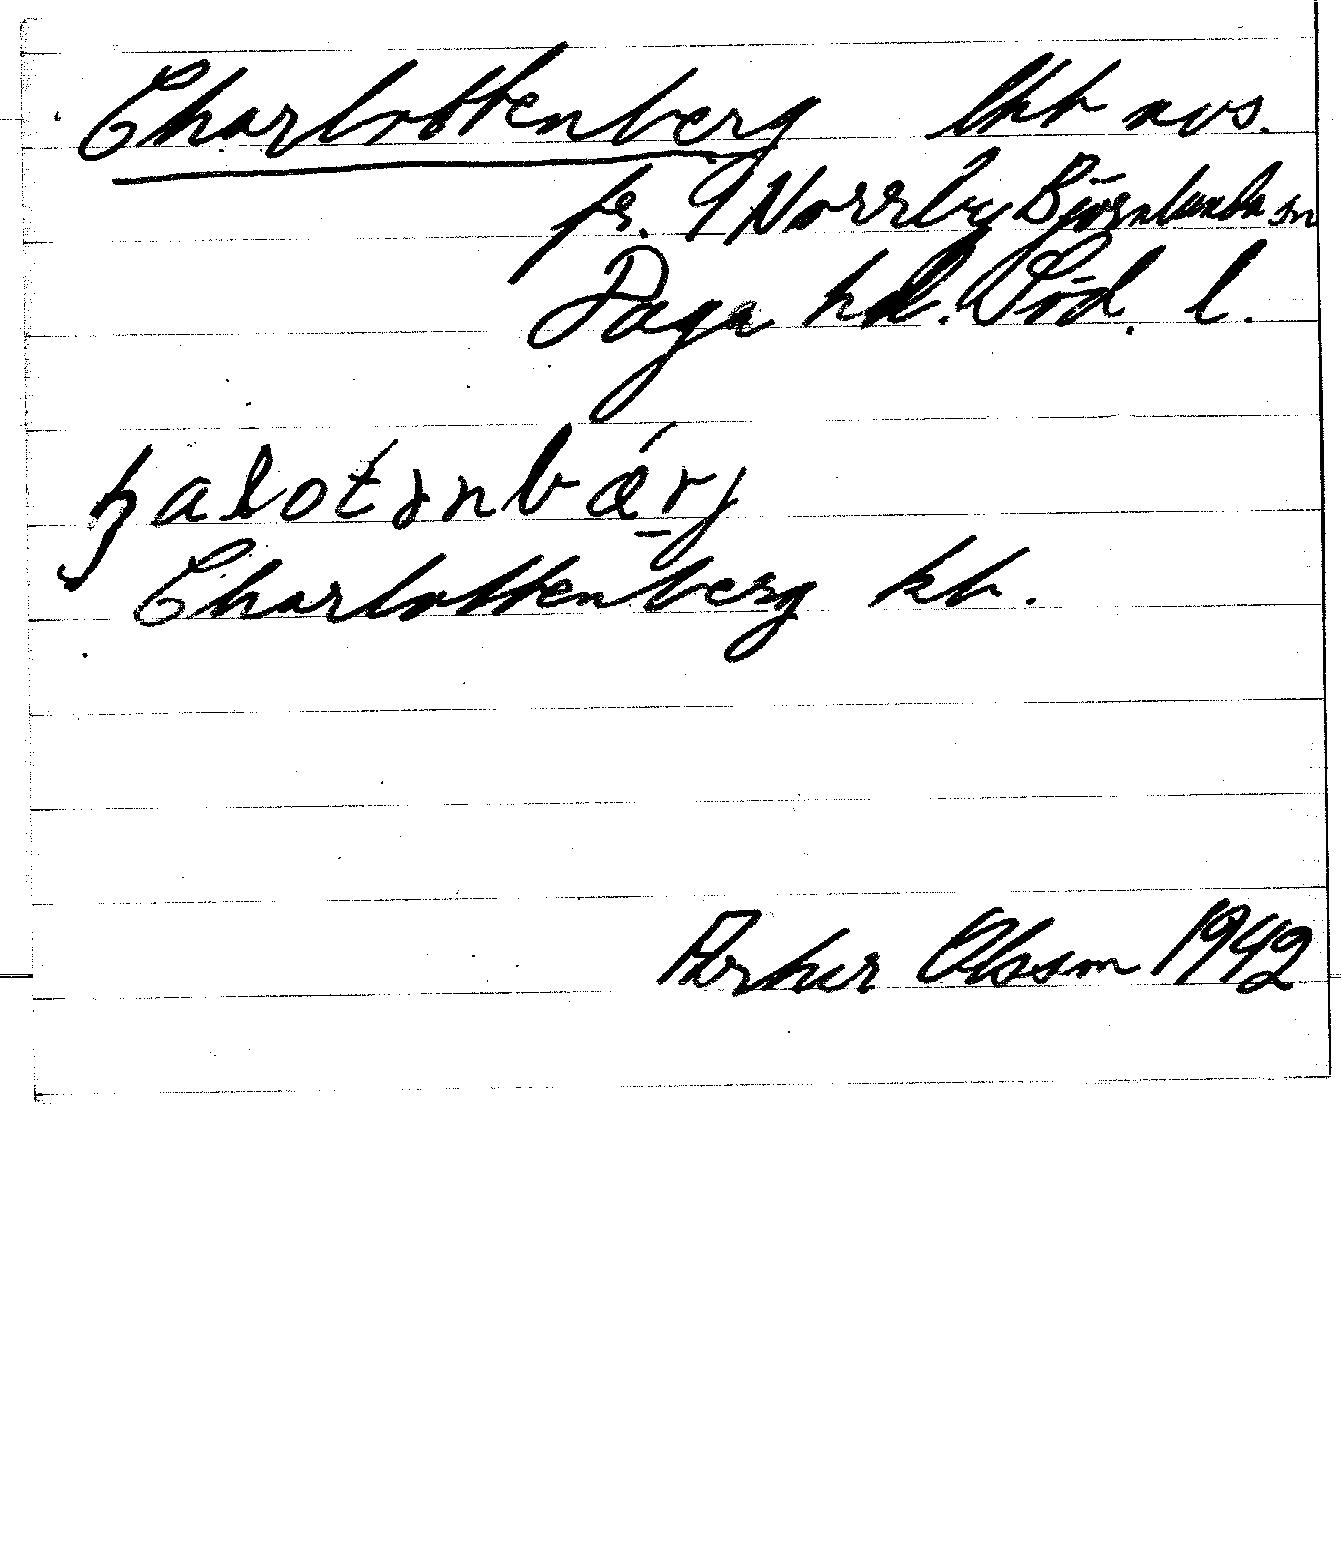 Charlottenberg lht avs.
fr. 9 Norrby Björnlunda sn
Daga hd. Söd. l.
ꞩalotənbǽrj
Charlottenberg kb.
Verner Olsson 1942